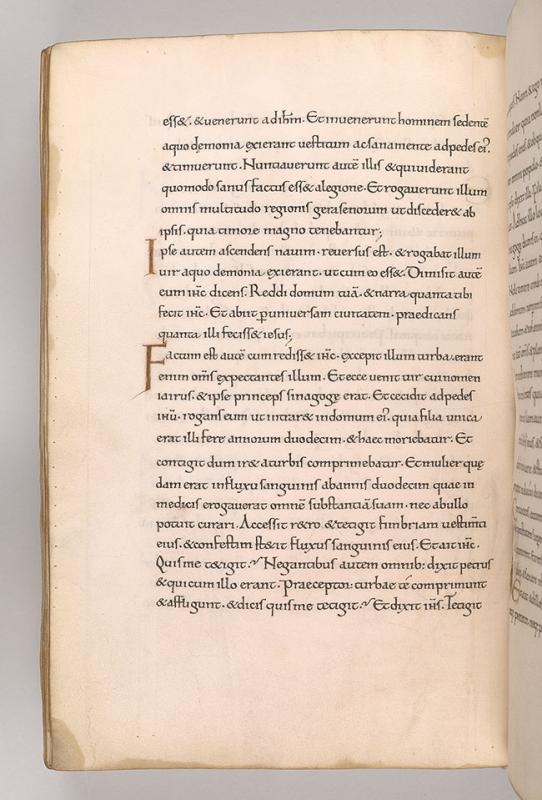 ess&. &venerunt ad ihm̅. Et invenerunt hominem sedente̅
a quo demonia exierant vestitum ac sana mente ad pedes ei᾽.
& timuerunt. Nuntiaverunt aute̅ illis & qui viderant
quomodo sanus factus ess& a legione. Et rogaverunt illum
omnis multitudo regionis gerasenorum ut disceder& ab
ipsis. quia timore magno tenebantur;
Ipse autem ascendens navim. reversus est. & rogabat illum
vir a quo demonia exierant. ut cum eo ess&. Dimisit aute̅
eum ihc̅ dicens. Reddi domum tua̅. & narra quanta tibi
fecit ihc̅. Et abiit p̱ universam civitatem. praedicans
quanta illi feciss& iesus;
Factum est aute̅ cum rediss& ihc̅. excepit illum turba. erant
enim om̅s expectantes illum. Et ecce venit vir cui nomen
iairus. & ipse princeps sinagogę erat. Et cecidit ad pedes
ihu̅. rogans eum ut intrar& in domum ei᾽. quia filia unica
erat illi fere annorum duodecim. & haec moriebatur. Et
contigit dum ir& a turbis comprimebatur. Et mulier quę
dam erat in fluxu sanguinis ab annis duodecim quae in
medicis erogauerat omne̅ substantia̅ suam. nec ab ullo
potuit curari. Accessit r&ro. & tetigit fimbriam vestim̅ti
eius. & confestim st&it fluxus sanguinis eius. Et ait ihc̅.
Quis me t&igit. Negantibus autem omnib; dixit petrus
& qui cum illo erant. Praeceptor turbae te̅ comprimunt
& affligunt. & dicis quis me tetigit. Et dixit ihs̅. Tetigit